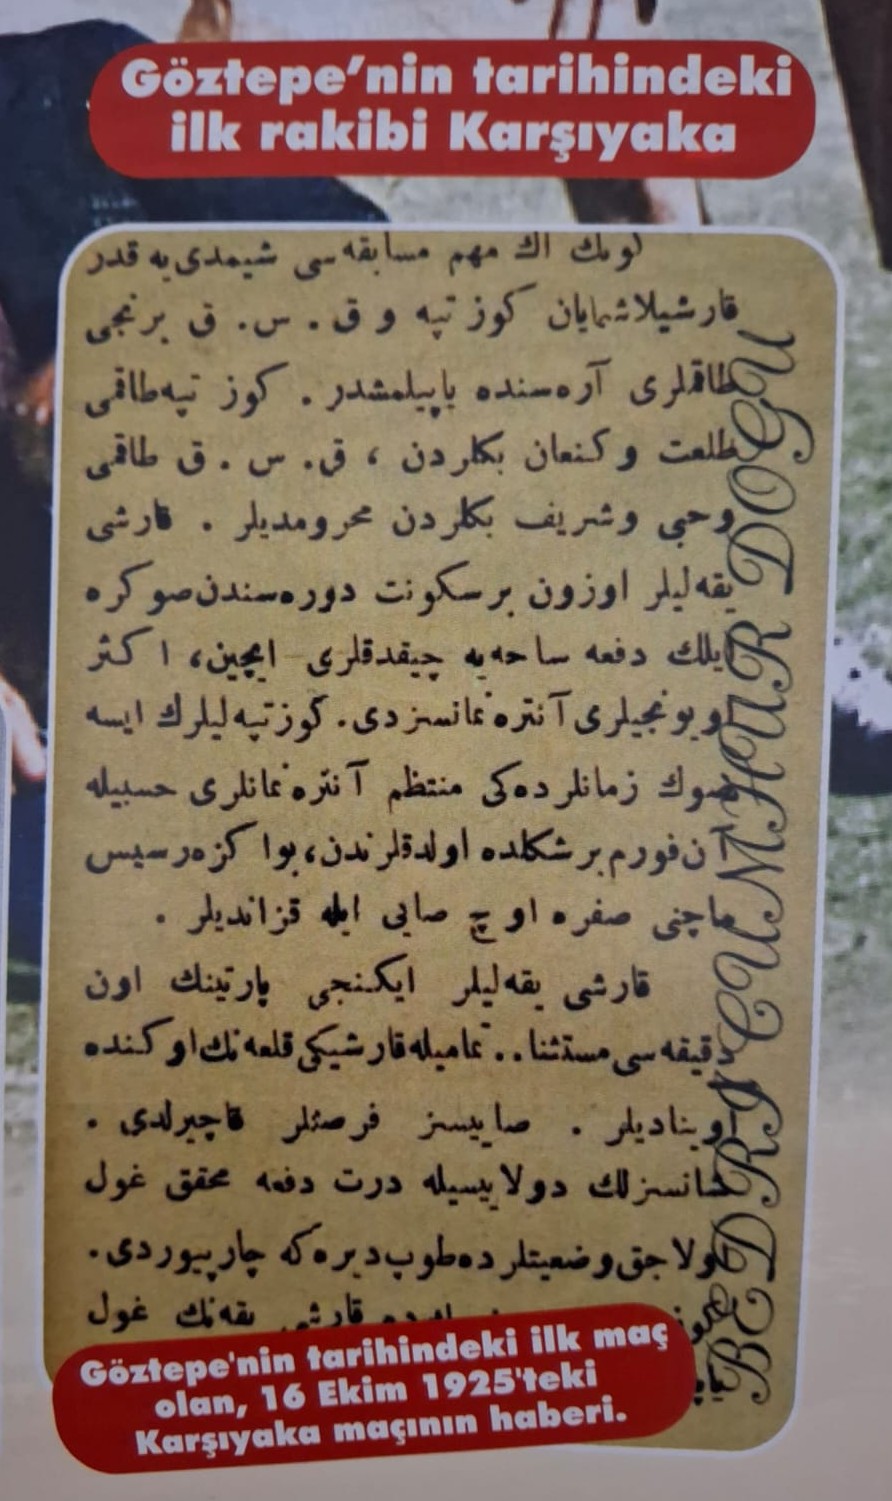 Göztepe'nin tarihindeki
ilk rakibi Karşıyaka
اك مهم مسابقه سی شیمدی یه قدر
قارشیلاشمایان كوز تپه و ق . س . ق برنجی
طاقملری آره سنده یاپیلمشدر . كوز تپه طاقمی
طلعت و كنعان بكلردن ، ق . س . ق طاقمی
وحبی و شریف بكلردن محرومدیلر . قارشی
یقه لیلر اوزون بر سكونت دوره سندن صوكره
ایلك دفعه ساحه یه چیقدقلری ایچین، اكثر
اویونجیلری آنتره نمانسزدی . كوزتپه لیلرك ایسه
صوك زمانلرده كی منتظم آنتره نمانلری حسبیله
آن فورم بر شكلده اولدقلرندن، بو ا كزه رسیس
ماچنی صفره اوچ صایی ایله قزاندیلر .
قارشی یقه لیلر ایكنجی پارتینك اون
دقیقه سی مستثنا .. تمامیله قارشیكی قلعه نك اوكنده
اوینادیلر . صاییسز فرصتلر قاچیرلدی .
شانسزلك دولاییسیله درت دفعه محقق غول
اولاجق وضعیتلرده طوپ دیره كه چارپیوردی .
قارشی یقه نك غول
BEDRİ CUMHUR DOĞU
Göztepe'nin tarihindeki ilk maç
olan, 16 Ekim 1925'teki
Karşıyaka maçının haberi.